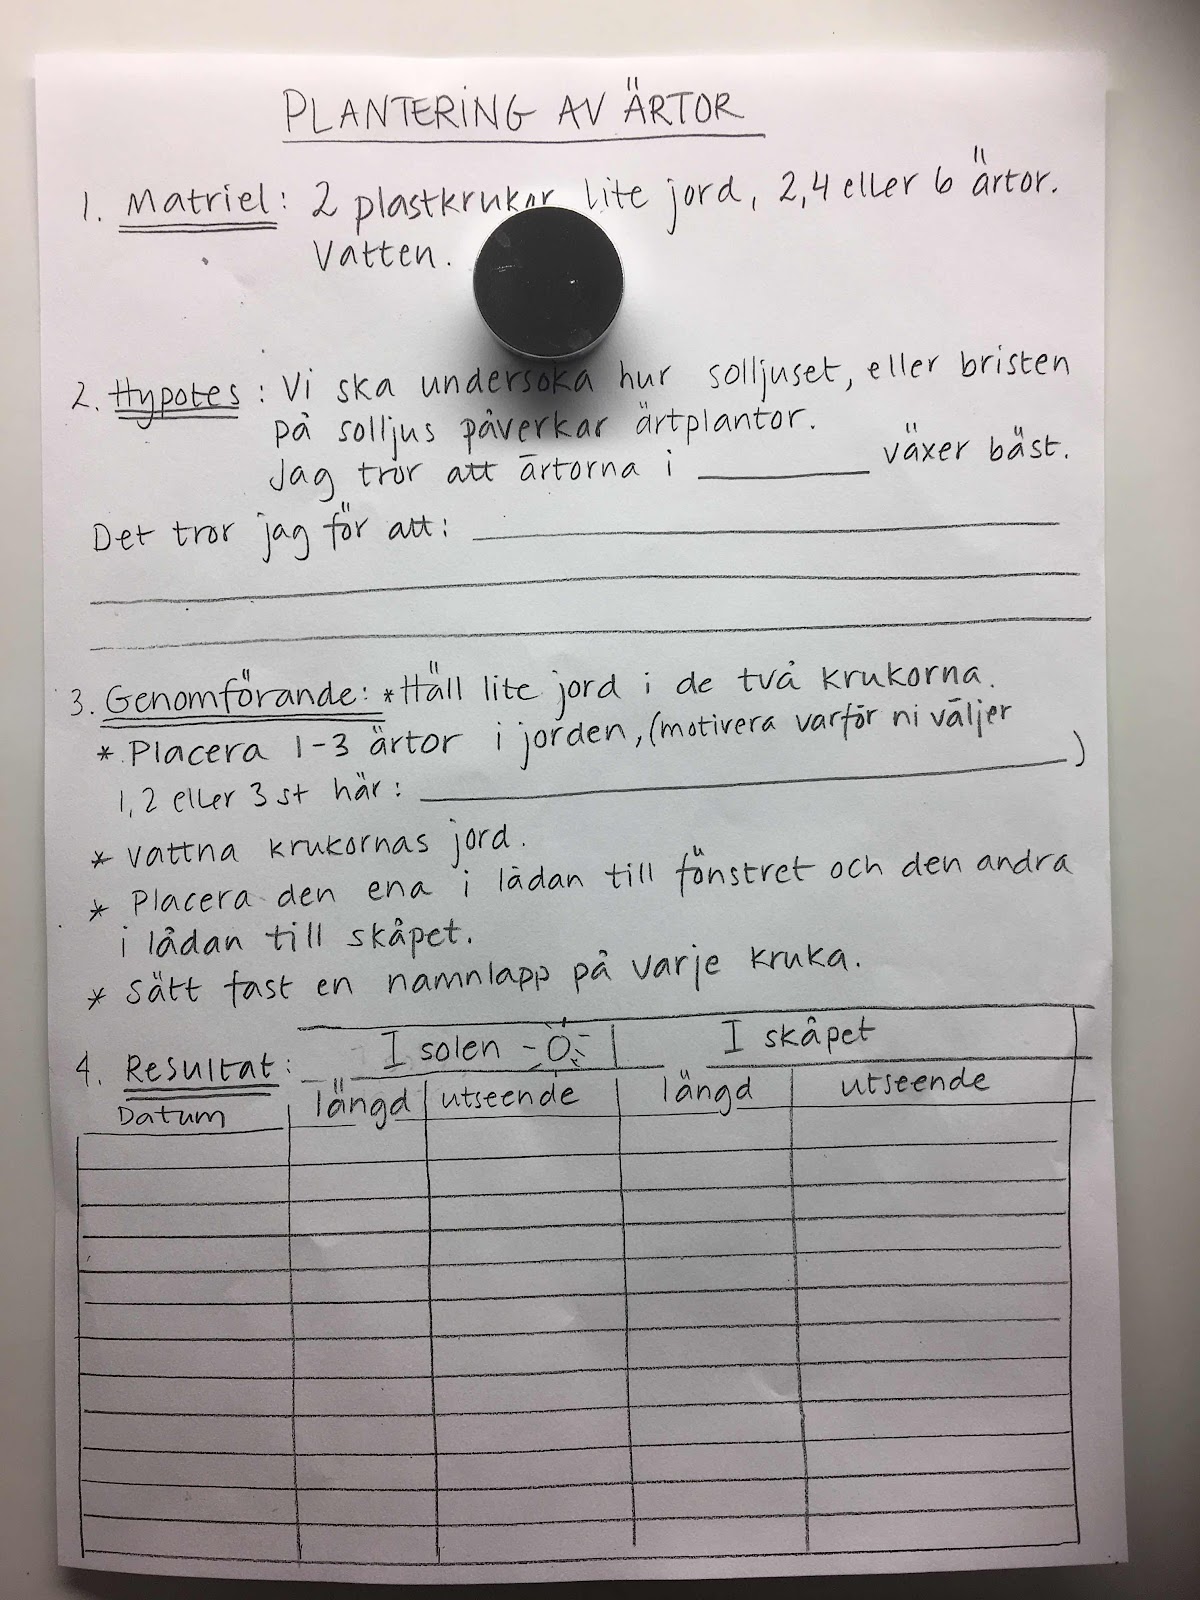 PLANTERING AV ÄRTOR
1. Matriel: 2 plastkrukor lite jord, 2,4 eller 6 ärtor.
Vatten.
2. Hypotes: Vi ska undersöka hur solljuset, eller bristen
på solljus påverkar ärtplantor.
Jag tror att ärtorna i ________ växer bäst.
Det tror jag för att: ________
3. Genomförande: *Häll lite jord i de två krukorna.
* Placera 1-3 ärtor i jorden, (motivera varför ni väljer
1, 2 eller 3 st här: ________)
* Vattna krukornas jord.
* Placera den ena i lådan till fönstret och den andra
i lådan till skåpet.
* Sätt fast en namnlapp på varje kruka.
I solen - I skåpet
4. Resultat:
Datum längd utseende längd utseende